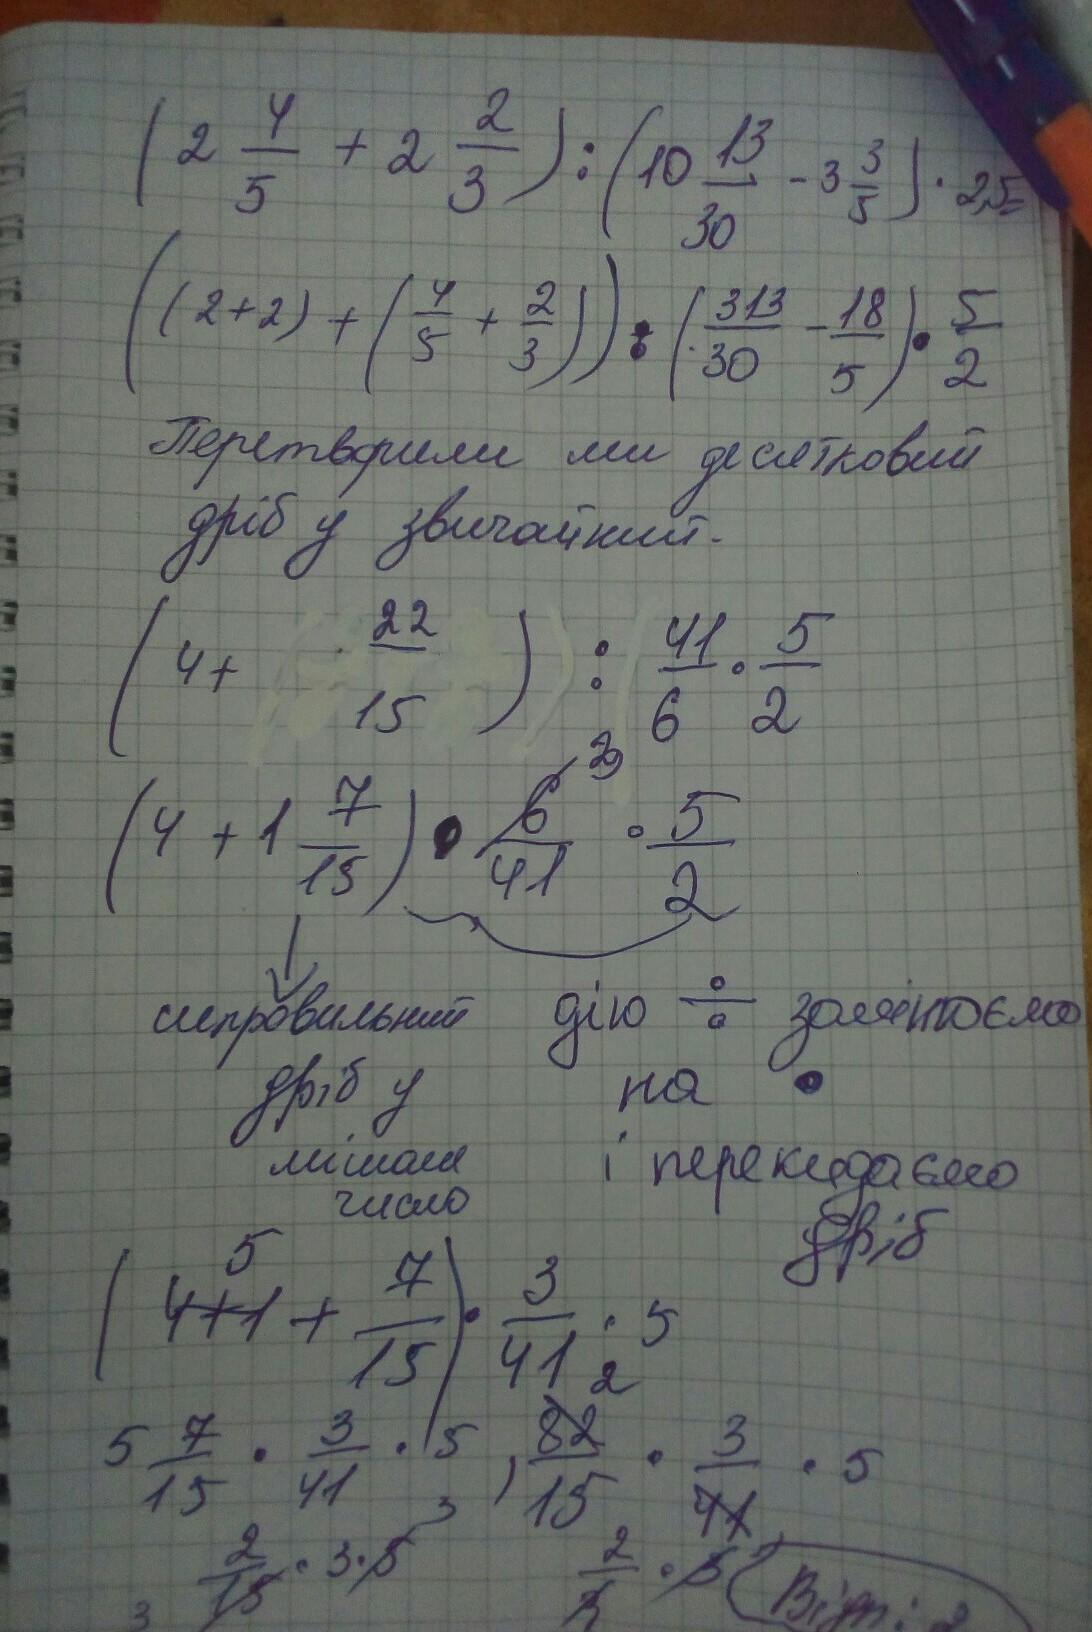 (2 4/5 + 2 2/3) : (10 13/30 - 3 3/5) · 2,5=
((2+2) + (4/5 + 2/3)) : (313/30 - 18/5) · 5/2
Перетворили ми десятковий
дріб у звичайний.
(4+ 22/15) : 41/6 · 5/2
3
(4 + 1 7/15) · 6/41 · 5/2
неправильний дію ÷ замінюємо
дріб у на ·
мішане і перекидаємо
число дріб
5
(4+1 + 7/15) · 3/41 · 5
2
5 7/15 · 3/41 · 5, 82/15 · 3/41 · 5
3 2/15 · 3 · 5 2/ · 5 Відп: 2